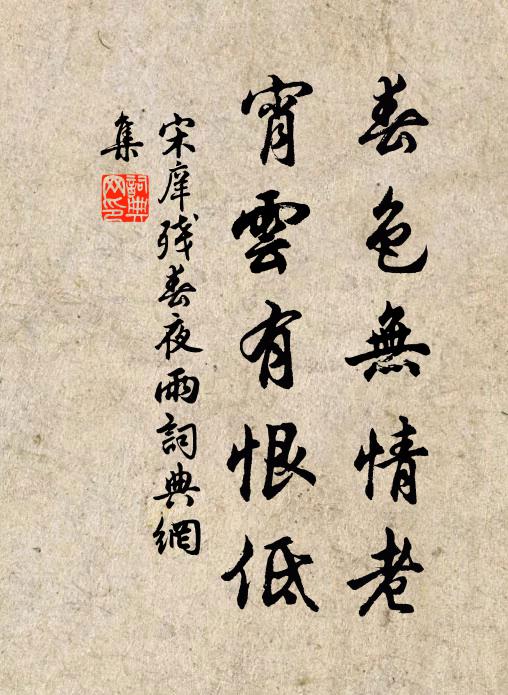 春色無情老
宵雲有恨低
宋庠殘春夜雨詞典網
集
詞典网印